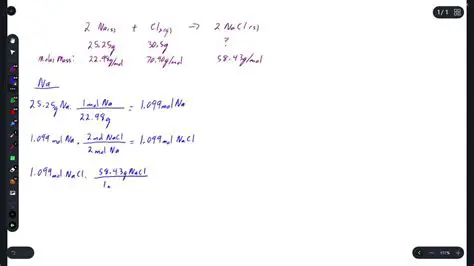 2 Na(s) + Cl2(g) → 2 NaCl(s)
25.25g 30.5g ?
molar mass: 22.98g/mol 70.90g/mol 58.43g/mol
Na
25.25g Na · 1 mol Na / 22.98g = 1.099 mol Na
1.099 mol Na · 2 mol NaCl / 2 mol Na = 1.099 mol NaCl
1.099 mol NaCl · 58.43g NaCl / 1
1 / 1